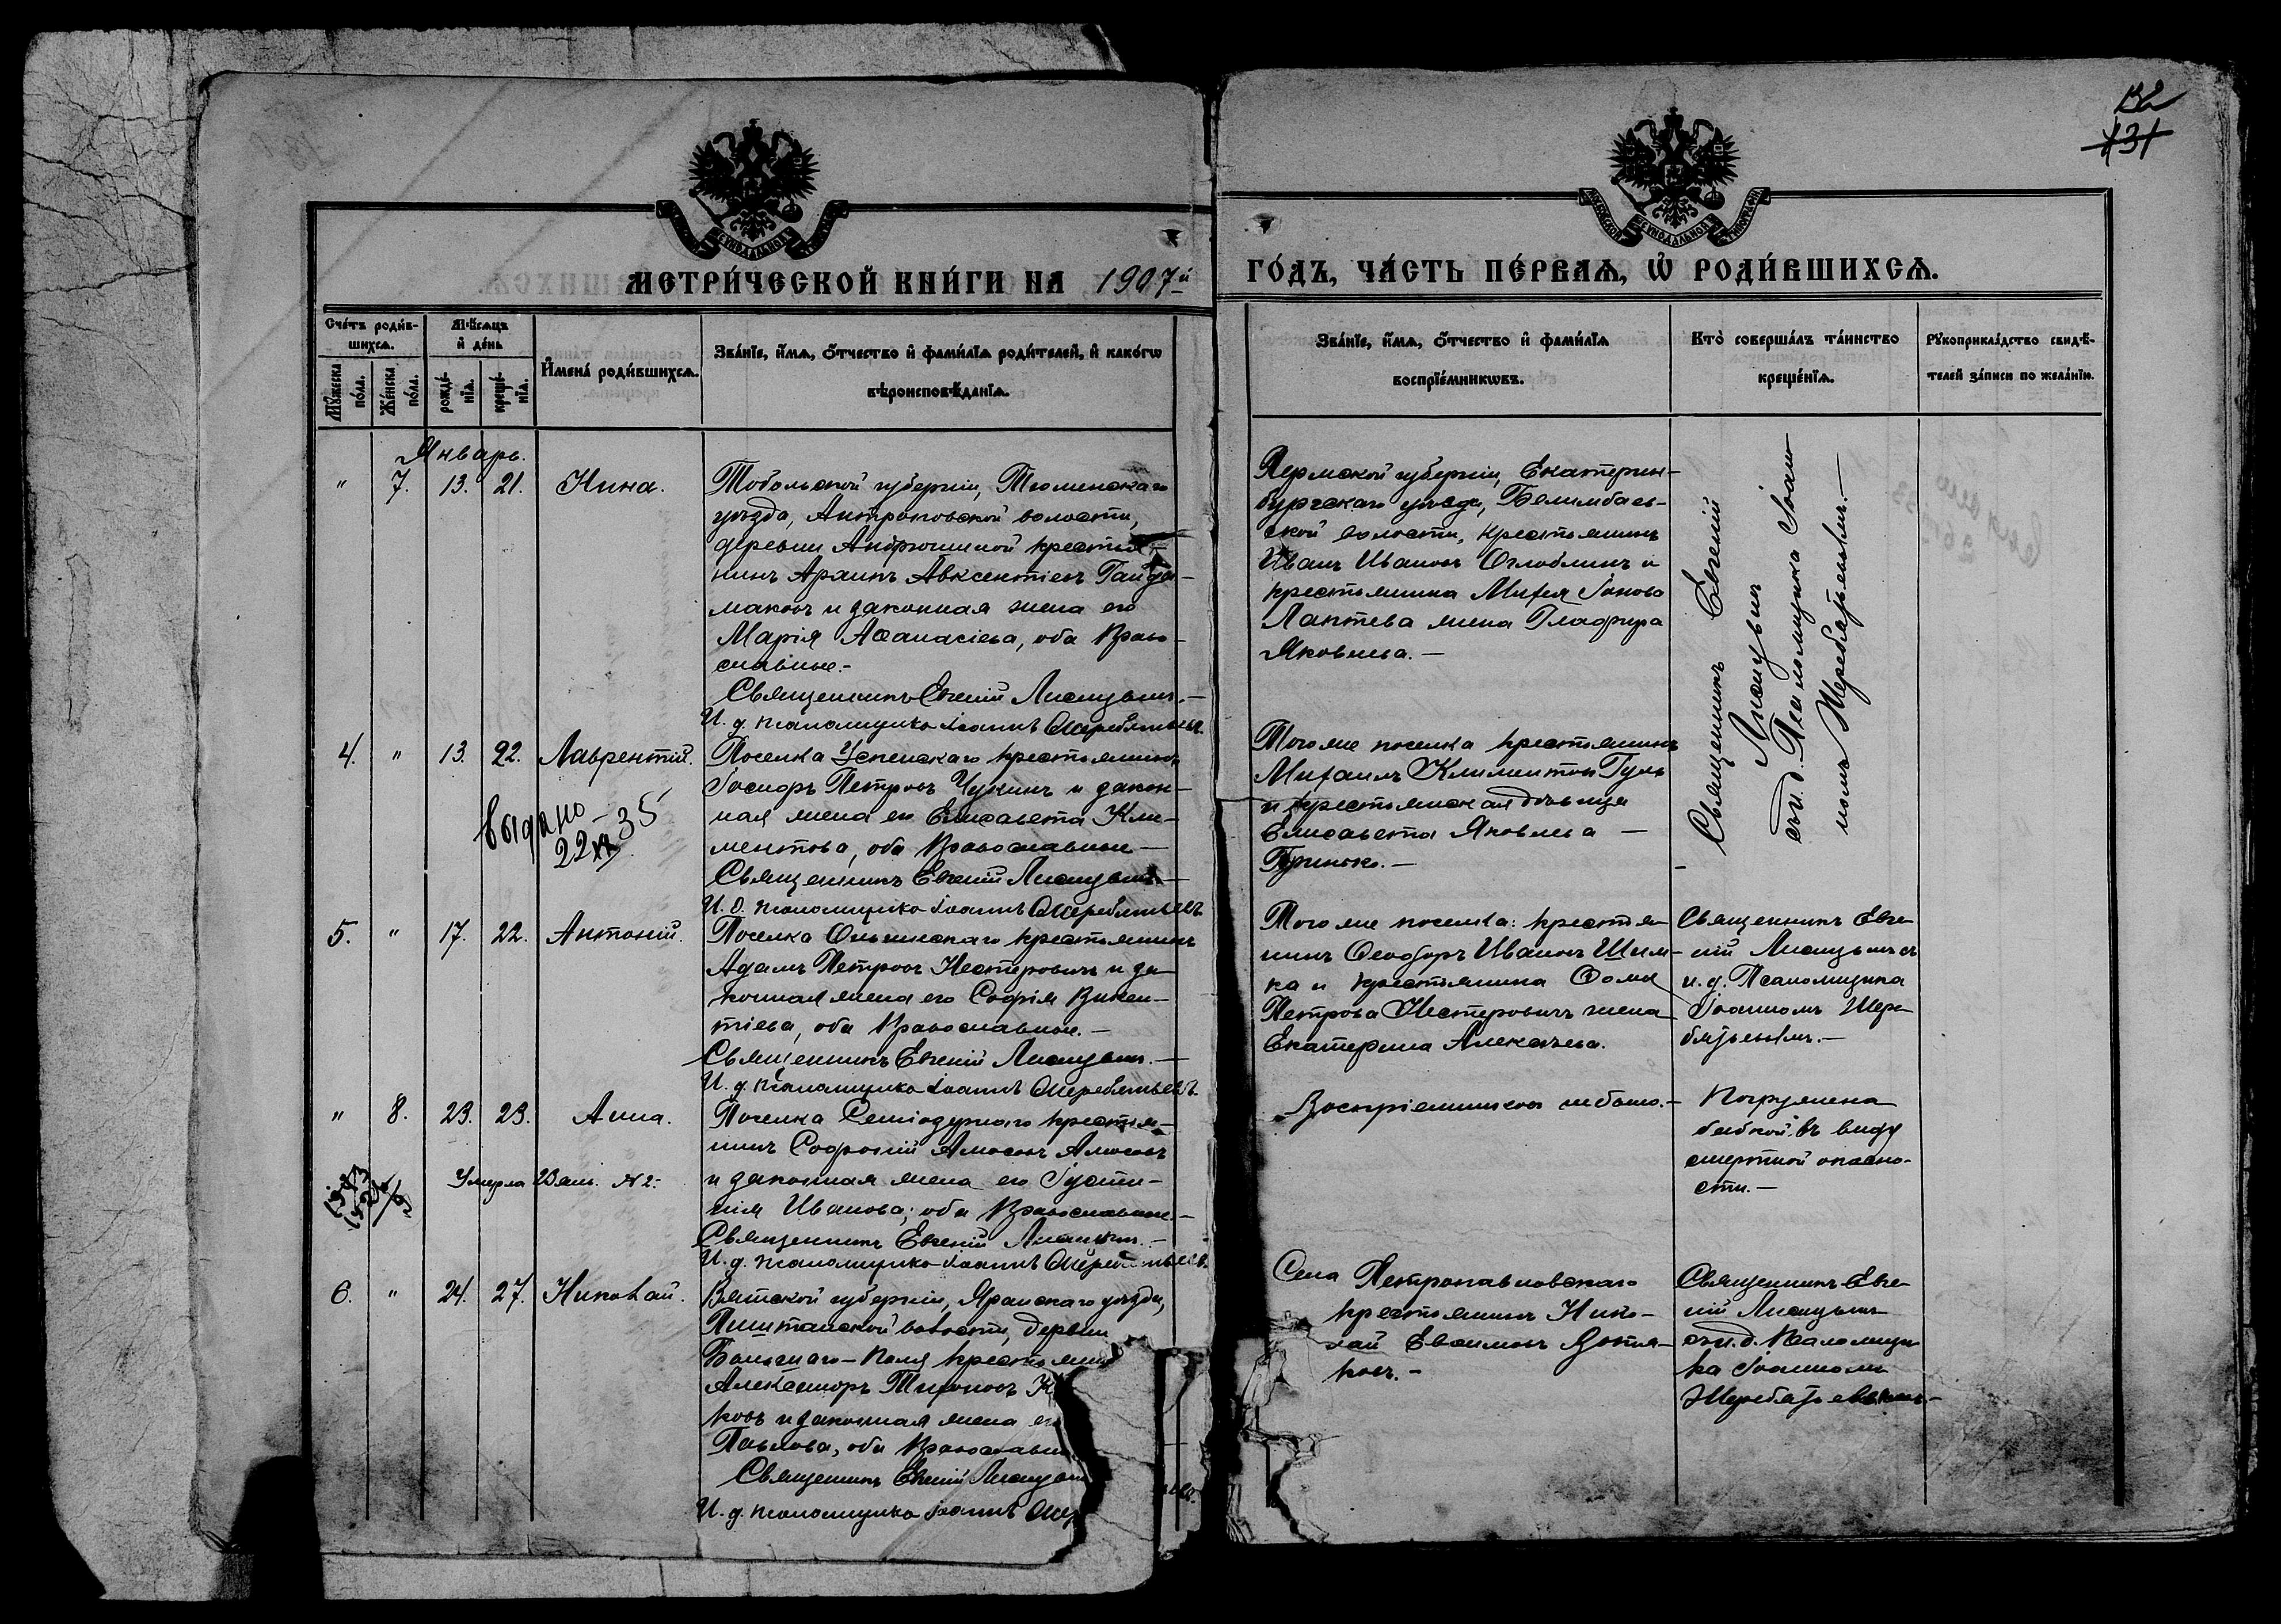 132
131
МЕТРИ́ЧЕСКОЙ КНИ́ГИ НА 1907й
ГО́ДЪ, ЧА́СТЬ ПЕ́РВАѦ, Ѡ РОДИ́ВШИХСѦ.
Сче́тъ роди́в-
шихсѧ.
Мꙋ́жеска по́ла.
Же́нска по́ла.
Мѣ́сѧцъ
и҆ де́нь
рожде́-
нїѧ.
креще́-
нїѧ.
И҆мена̀ роди́вшихсѧ.
Зва́нїе, и҆́мѧ, ѻ҆́тчество и҆ фами́лїѧ роди́телей, и҆ како́гѡ
вѣроисповѣ́данїѧ.
Зва́нїе, и҆́мѧ, ѻ҆́тчество и҆ фами́лїѧ
воспрїе́мникѡвъ.
Кто̀ соверша́лъ та́инство
креще́нїѧ.
Рꙋкоприкла́дство свидѣ́-
телей за́писи по жела́нїю.
Январь.
" 7. 13. 21. Нина.
Тобольской губерніи, Тюменскаго
уѣзда, Антроповской волости,
деревни Андрюшиной крестья-
нинъ Архипъ Авксентіевъ Гайда-
маковъ и законная жена его
Марія Аѳанасіева, оба Право-
славные.-
Священникъ Евгеній Лисицынъ.-
И. д. псаломщика Іоаннъ Жеребятьевъ.
Пермской губерніи, Екатерин-
бургскаго уѣзда, Белимбаев-
ской волости, крестьянинъ
Иванъ Ивановъ Оглоблинъ и
крестьянина Михея Іонова
Лаптева жена Глафира
Яковлева.-
Священникъ Евгеній
Лисицынъ
съ и. д. Псаломщика Іоан-
номъ Жеребятьевымъ.-
4. " 13. 22. Лаврентій.
Поселка Успенскаго крестьянинъ
Іосифъ Петровъ Чукинъ и закон-
ная жена его Елисавета Кли-
ментова, оба Православные-
Священникъ Евгеній Лисицынъ-
И. д. псаломщика Іоаннъ Жеребятьевъ
выдано
22 35
Того же поселка крестьянинъ
Михаилъ Климентовъ Гуль
и крестьянская дѣвица
Елисавета Яковлева-
Гринько.-
5. " 17. 22. Антоній.
Поселка Ольгинскаго крестьянинъ
Адамъ Петровъ Нестеровичъ и за-
конная жена его Софія Викен-
тіева, оба Православные.-
Священникъ Евгеній Лисицынъ.-
И. д. псаломщика Іоаннъ Жеребятьевъ.
Того же поселка: крестья-
нинъ Ѳеодоръ Ивановъ Шим-
ка и крестьянина Ѳомы
Петрова Нестеровичъ жена
Екатерина Алексѣева.
Священникъ Евге-
ній Лисицынъ съ
и. д. Псаломщика
Іоанномъ Жере-
бятьевымъ.-
" 8. 23. 23. Анна.
Умерла 23 янв. №2.
Поселка Семіозернаго крестья-
нинъ Софроній Амосовъ Амосовъ
и законная жена его Іусти-
нія Иванова; оба Православные.-
Священникъ Евгеній Лисицынъ.-
И. д. псаломщика Іоаннъ Жеребятьевъ.
Воспріемниковъ не было.-
Погружена
бабкой въ виду
смертной опасно-
сти.-
6. " 24. 27. Николай.
Вятской губерніи, Яранскаго уѣзда,
Пиштанской волости, деревни
Большаго-Поля крестьянинъ
Александръ Тихоновъ К
ковъ и законная жена его
Павлова, оба Православные
Священникъ Евгеній Лисицынъ
И. д. псаломщика Іоаннъ Жер
Села Петропавловскаго
крестьянинъ Нико-
лай Евѳимовъ Вотя-
ковъ.-
Священникъ Евге-
ній Лисицынъ
съ и. д. Псаломщи-
ка Іоанномъ
Жеребятьевымъ-